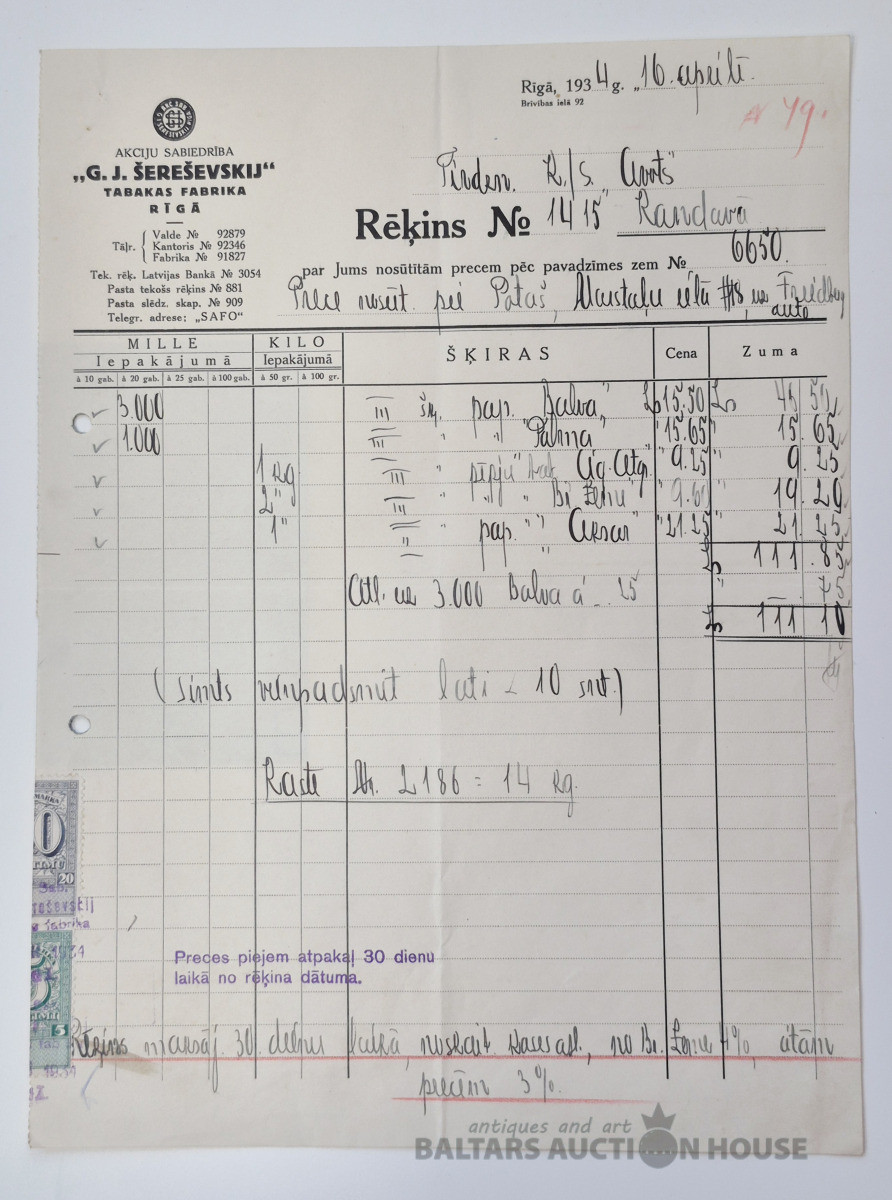 Rīgā, 1934 g. „16. aprīlī.
Brīvības ielā 92
49.
AKCIJU SABIEDRĪBA
„G. J. ŠEREŠEVSKIJ“
TABAKAS FABRIKA
RĪGĀ
Valde № 92879
Tāļr. Kantoris № 92346
Fabrika № 91827
Tek. rēķ. Latvijas Bankā № 3054
Pasta tekošs rēķins № 881
Pasta slēdz. skap. № 909
Telegr. adrese: „SAFO“
K./S.
Rēķins № 1415 Kandavā
par Jums nosūtītām precem pēc pavadzīmes zem № 6650.
Prece nosūt. pie
auto
MILLE KILO ŠĶIRAS Cena Zuma
Iepakājumā Iepakājumā
à 10 gab. à 20 gab. à 25 gab. à 100 gab. à 50 gr. à 100 gr.
3.000 III šķ. pap. „Balva“ Ls 15.50 Ls 46 50
1.000 III " " „Palma“ " 15.65 " 15. 65
1 kg III " pīpju tab. " 9.25 " 9. 25
2 " III " " " 9.60 " 19. 20
1 " II " pap. " " 21.25 " 21. 25
Ls 111. 85
Atl. uz 3.000 Balva à -.25 " -. 75
Ls 111 10
(simts vienpadsmit lati 10 snt.)
Kaste Nr. 2186 = 14 kg.
20
5
Preces pieņem atpakaļ 30 dienu
laikā no rēķina dātuma.
Rēķins 30 dienu laikā, 4%,
precēm 3%.
antiques and art
BALTARS AUCTION HOUSE